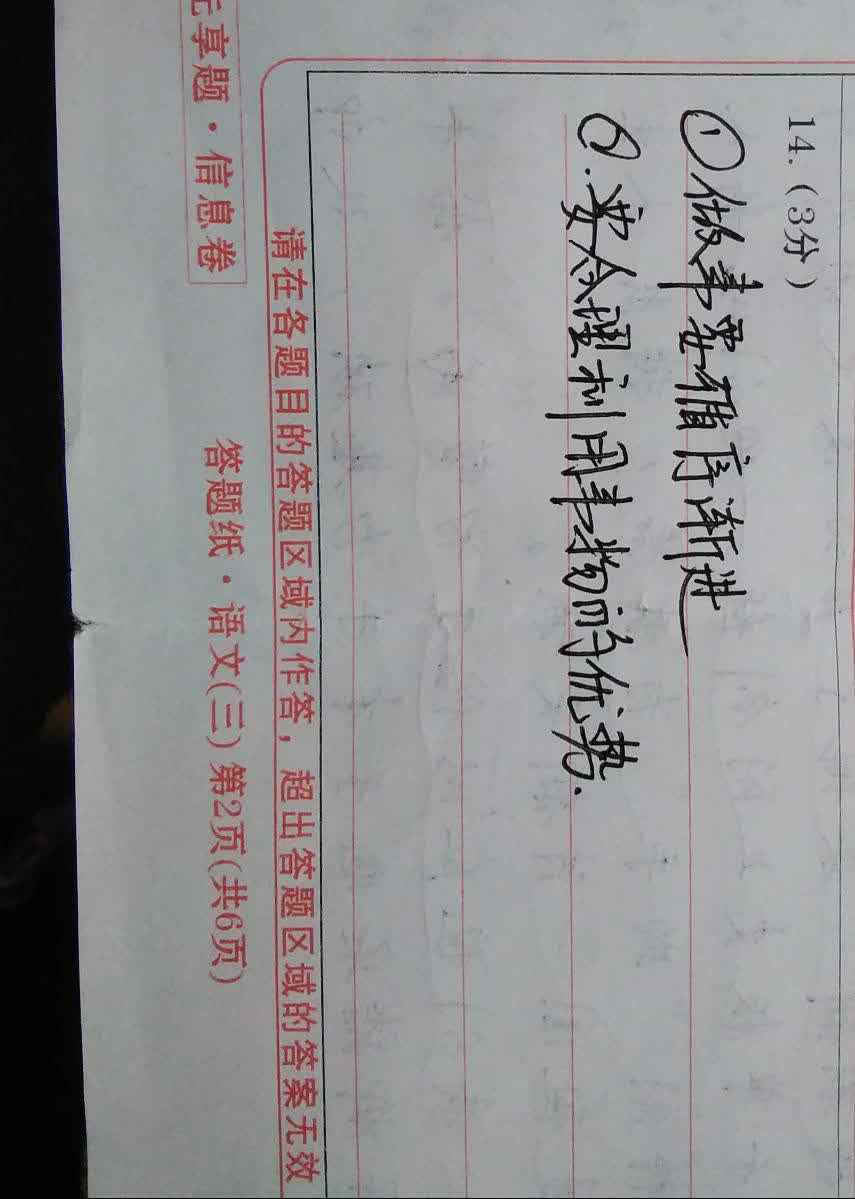 14.(3分)
①做事要循序渐进
②.要合理利用事物的优势.
请在各题目的答题区域内作答，超出答题区域的答案无效
答题纸·语文(三) 第2页(共6页)
元享题·信息卷